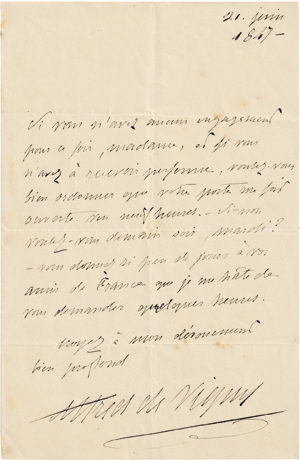 21. juin
1847 -
Si vous n'avez aucun engagement
pour ce soir, madame, et si vous
n'avez à recevoir personne, voulez-vous
bien ordonner que votre porte me soit
ouverte vers neuf heures. - Si non
voulez-vous demain soir, mardi ?
- vous donnez si peu de jours à vos
amis de France que je me hâte de
vous demander quelques heures.
croyez à mon dévouement
bien profond
Alfred de Vigny